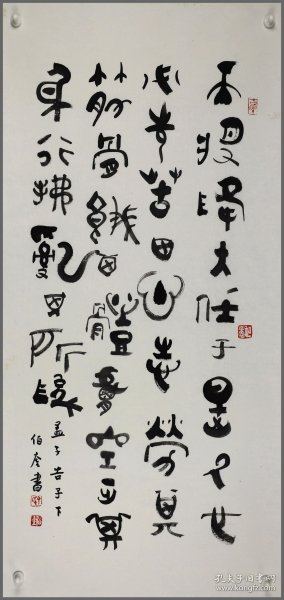 天將降大任于是人也
必先苦其心志勞其
筋骨餓其體膚空乏其
身行拂亂其所為
孟子告子下
伯奎書
孔夫子旧书网